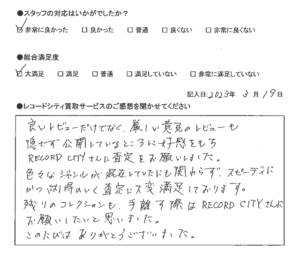 ●スタッフの対応はいかがでしたか?
☑ 非常に良かった □ 良かった □ 普通 □ 良くない □ 非常に良くない
●総合満足度
☑ 大満足 □ 満足 □ 普通 □ 満足していない □ 非常に満足していない
記入日:2023年 3月 19日
●レコードシティ買取サービスのご感想を聞かせてください
良いレビューだけでなく、厳しい意見のレビューも
隠さず公開しているところに好感をもち
RECORD CITYさんに査定をお願いしました。
色々なジャンルが混在していたにも関わらず、スピーディに
かつ納得のいく査定に大変満足しております。
残りのコレクションも、手離す際はRECORD CITYさんに
お願いしたいと思いました。
このたびは ありがとうございました。